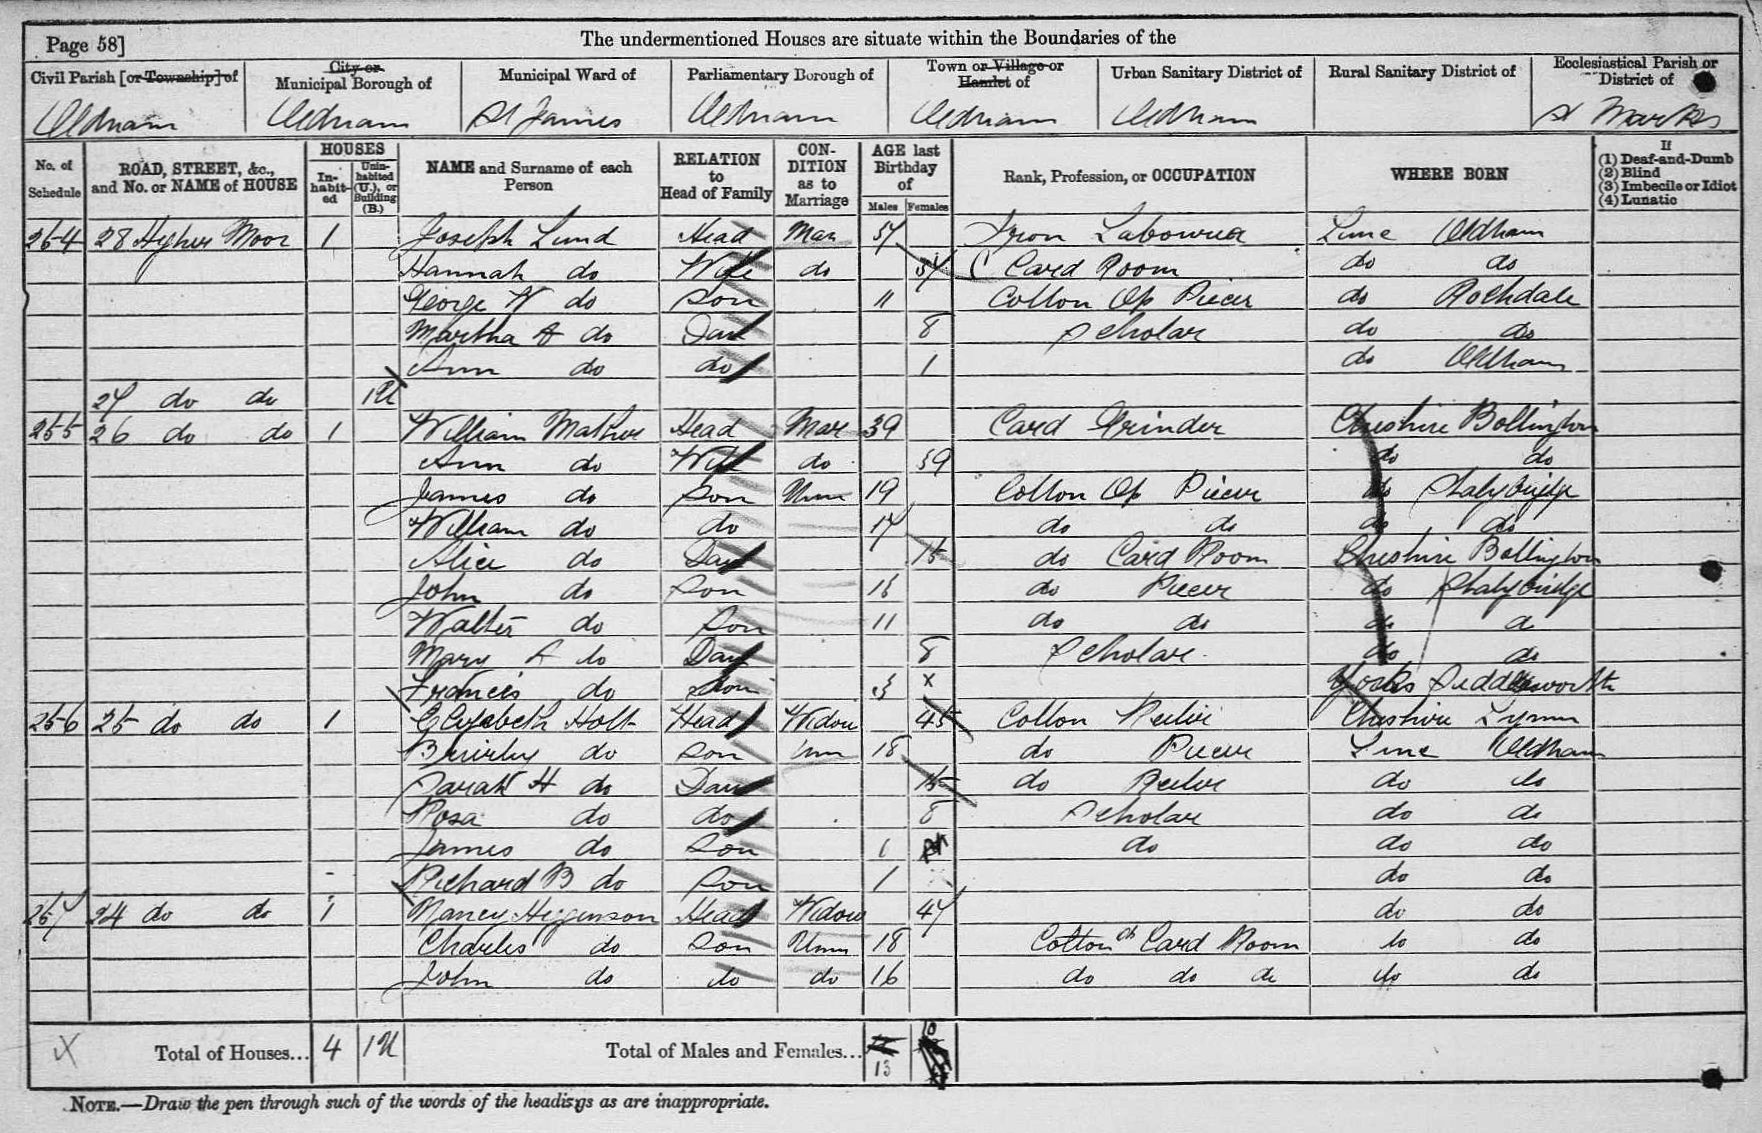 Page 58]
The undermentioned Houses are situate within the Boundaries of the
Civil Parish [or Township] of
City or Municipal Borough of
Municipal Ward of
Parliamentary Borough of
Town or Village or Hamlet of
Urban Sanitary District of
Rural Sanitary District of
Ecclesiastical Parish or District of
Oldham Oldham St James Oldham Oldham Oldham St Marks
No. of Schedule
ROAD, STREET, &c., and No. or NAME of HOUSE
HOUSES
In-habit-ed
Unin-habited (U.), or Building (B.)
NAME and Surname of each Person
RELATION to Head of Family
CON-DITION as to Marriage
AGE last Birthday of
Males Females
Rank, Profession, or OCCUPATION
WHERE BORN
If
(1) Deaf-and-Dumb
(2) Blind
(3) Imbecile or Idiot
(4) Lunatic
254 28 Higher Moor 1 Joseph Lund Head Mar 37 Iron Labourer Lanc Oldham
Hannah do Wife do 37 Card Room do do
George W do Son 11 Cotton Op Piecer do Rochdale
Martha A do Daur 8 Scholar do do
Ann do do 1 do Oldham
27 do do 1U
255 26 do do 1 William Mather Head Mar 39 Card Grinder Cheshire Bollington
Ann do Wife do 39 do do
James do Son Unm 19 Cotton Op Piecer do Stalybridge
William do do 17 do do do do
Alice do Daur 15 do Card Room Cheshire Bollington
John do Son 13 do Piecer do Stalybridge
Walter do Son 11 do do do do
Mary A do Daur 8 Scholar do do
Francis do Son 3 x Yorks Saddleworth
256 25 do do 1 Elizabeth Holt Head Widow 45 Cotton Reeler Cheshire Lymm
do Son Unm 18 do Piecer Lanc Oldham
Sarah H do Daur 15 do Reeler do do
Rosa do do 8 Scholar do do
James do Son do do do
Richard B do Son 1 do do
257 24 do do 1 Nancy Higginson Head Widow 47 do do
Charles do Son Unm 18 Cotton Card Room do do
John do do do 16 do do do do do
Total of Houses... 4 1U Total of Males and Females... 13 10
NOTE.—Draw the pen through such of the words of the headings as are inappropriate.